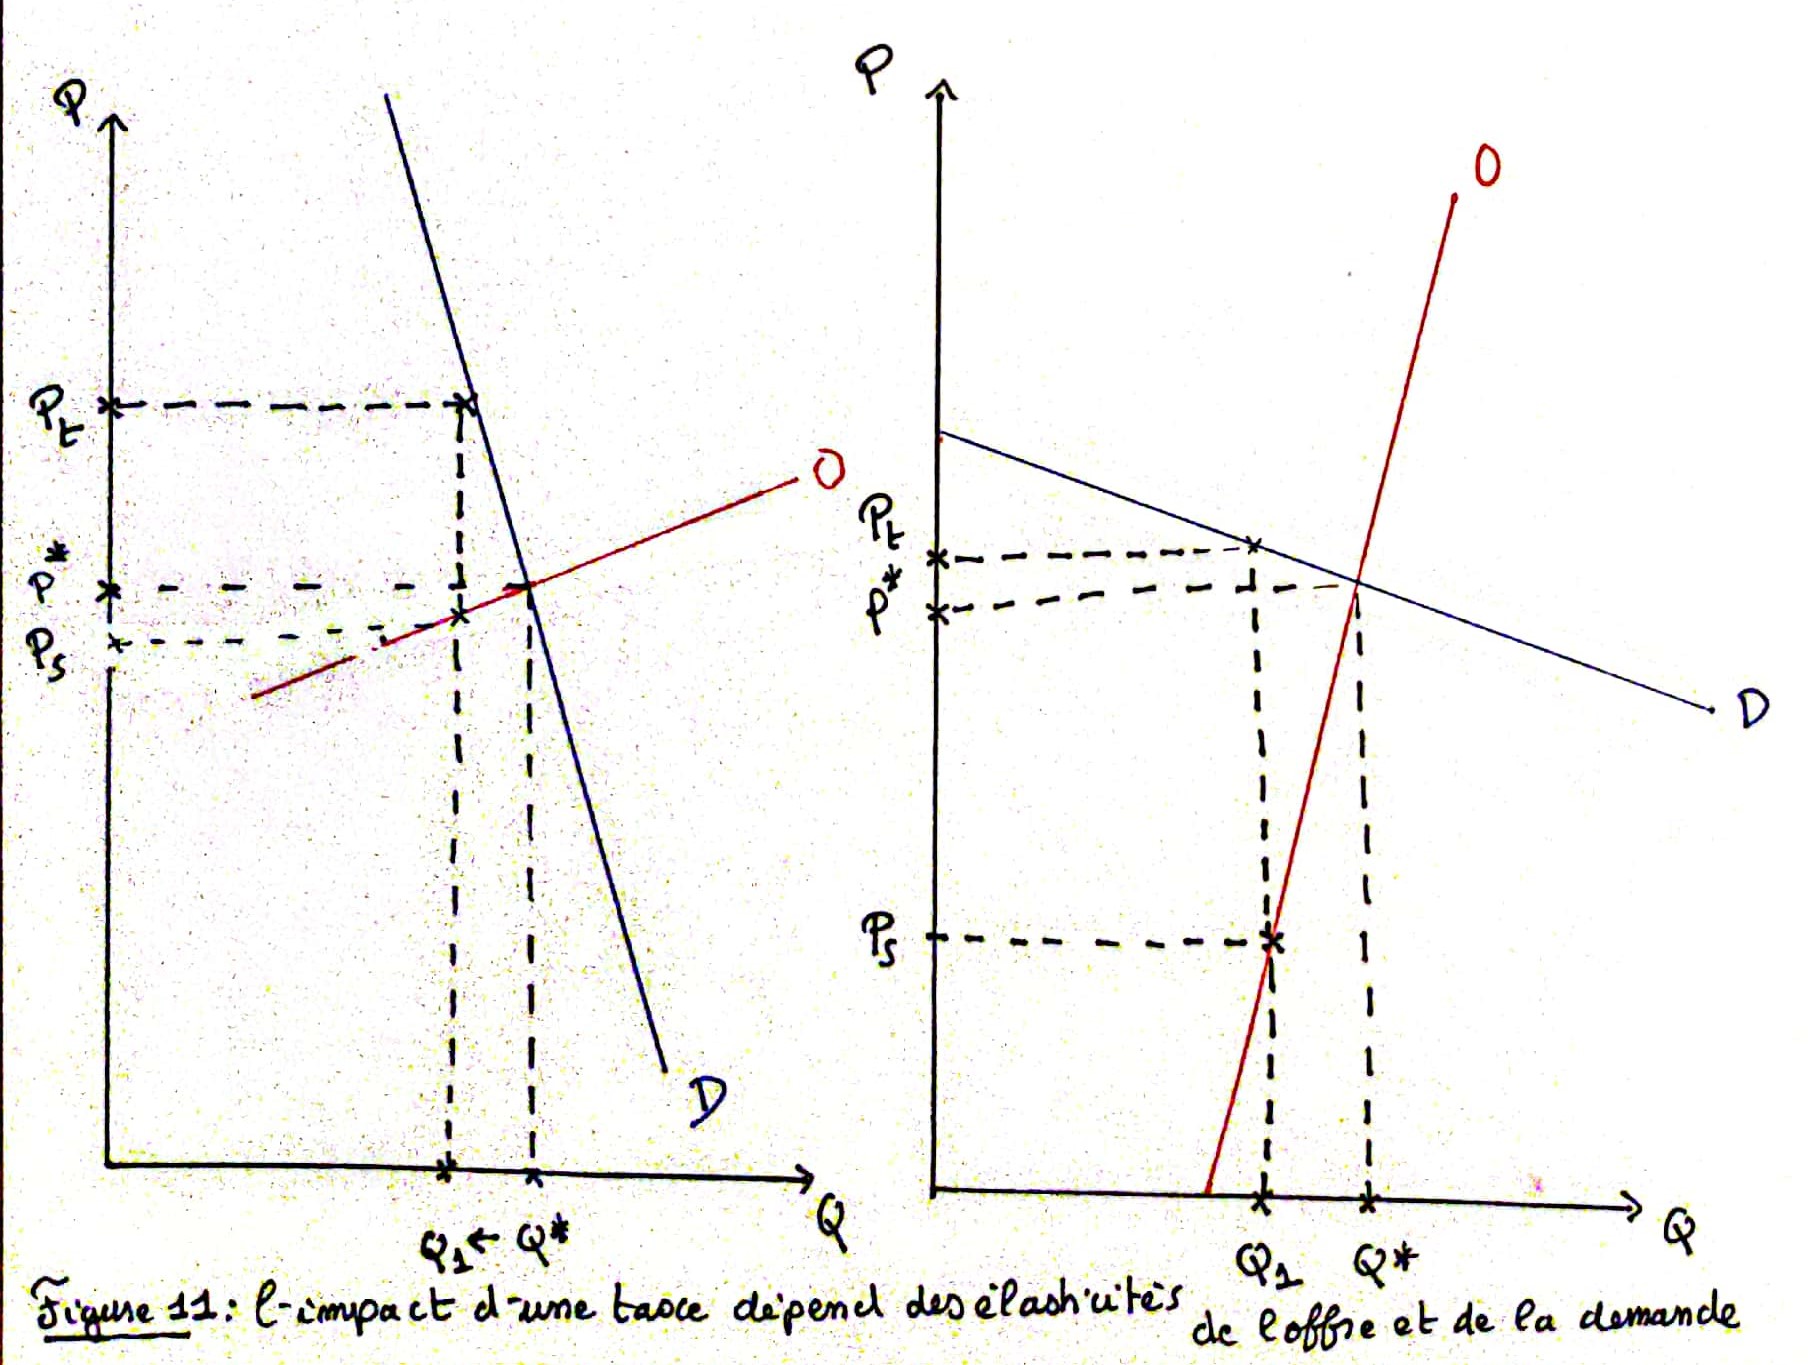 P
Pt
P*
Ps
O
D
Q1 ← Q*
Q
P
O
Pt
P*
D
Ps
Q1 Q*
Q
Figure 11 : l'impact d'une taxe dépend des élasticités
de l'offre et de la demande